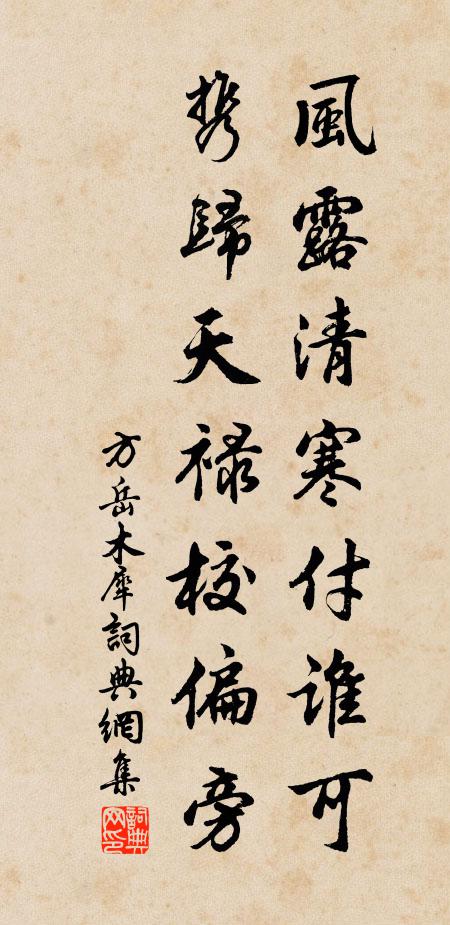 風露清寒付誰可
携歸天禄校偏旁
方岳木犀詞典網集
詞典網印